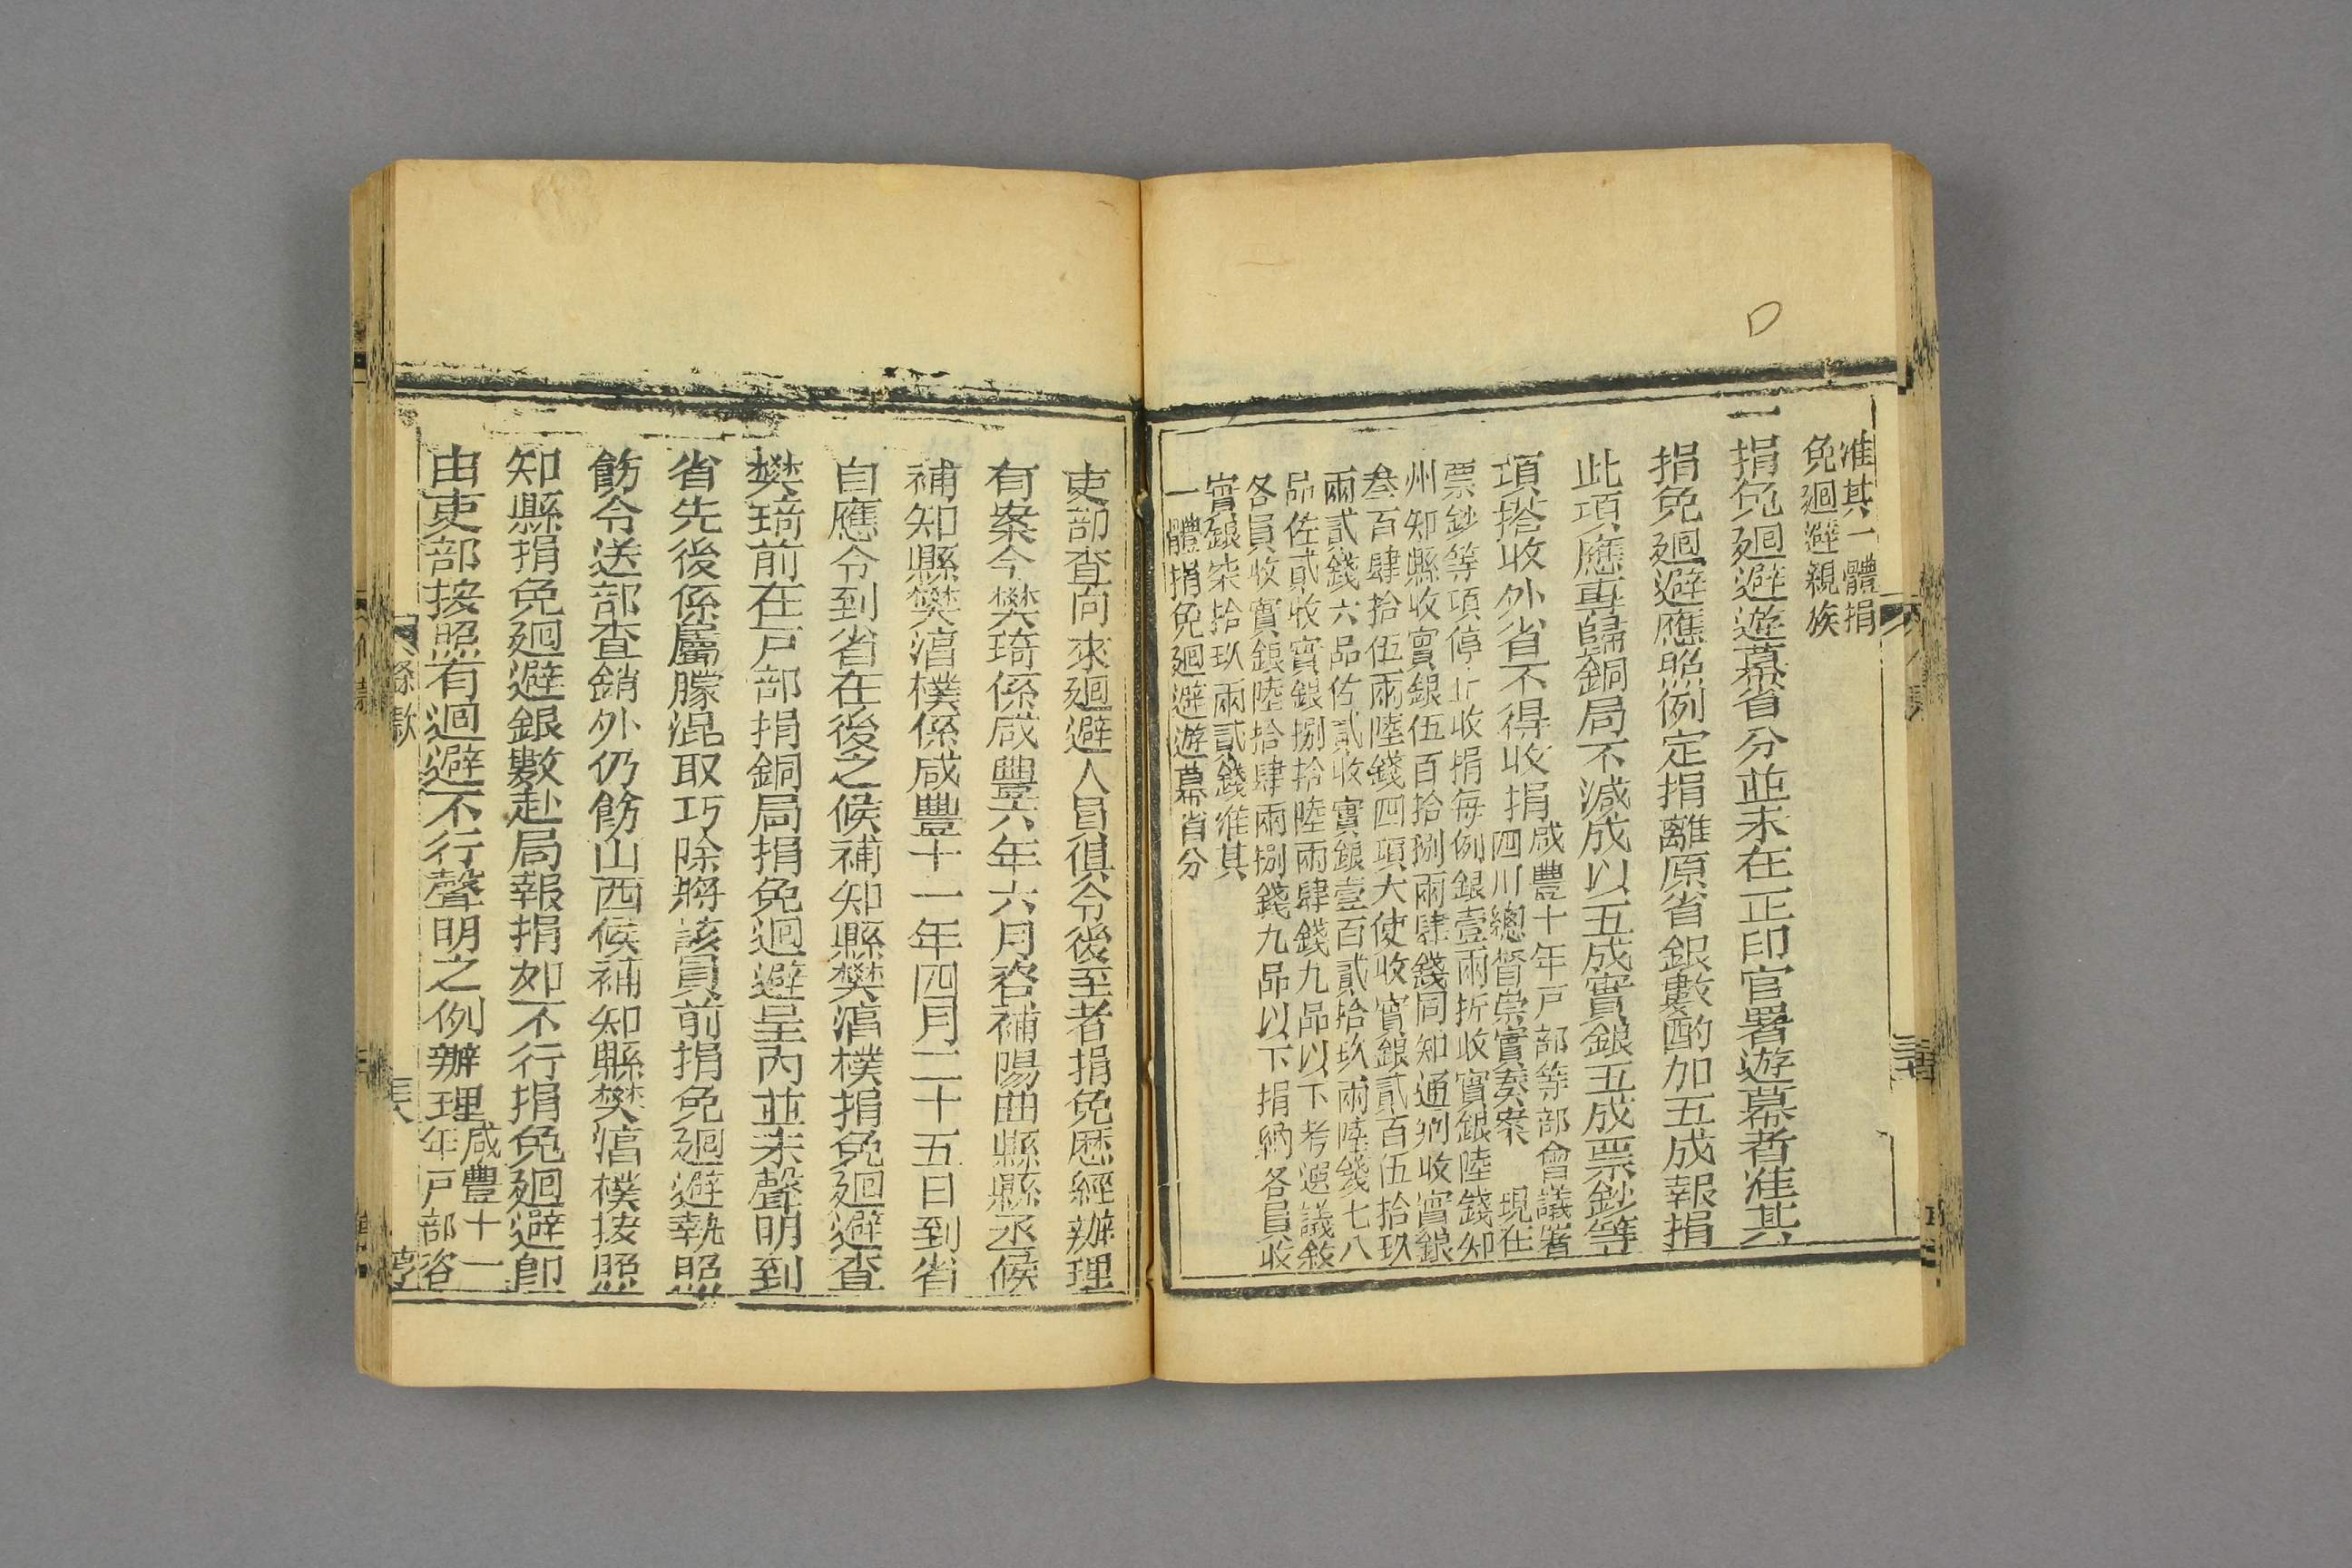 准其一體捐
免迴避親族
一捐免迴避遊幕省分並未在正印官署遊幕者准其
捐免迴避應照例定捐離原省銀數酌加五成報捐
此項應專歸銅局不減成以五成實銀五成票鈔等
項搭收外省不得收捐
咸豐十年戸部等部會議署
四川總督崇實奏案　現在
票鈔等項停止收捐每例銀壹兩折收實銀陸錢知
州知縣收實銀伍百拾捌兩肆錢同知通判收實銀
叁百肆拾伍兩陸錢四項大使收實銀貳百伍拾玖
兩貳錢六品佐貳收實銀壹百貳拾玖兩陸錢七八
品佐貳收實銀捌拾陸兩肆錢九品以下考選議敘
各員收實銀陸拾肆兩捌錢九品以下捐納各員收
實銀柒拾玖兩貳錢准其
一體捐免迴避遊幕省分
吏部查向來迴避人員俱令後至者捐免歷經辦理
有案今樊琦係咸豐六年六月咨補陽曲縣縣丞候
補知縣樊滆樸係咸豐十一年四月二十五日到省
自應令到省在後之候補知縣樊滆樸捐免迴避查
樊琦前在戸部捐銅局捐免迴避呈內並未聲明到
省先後係屬朦混取巧除將該員前捐免迴避執照
飭令送部查銷外仍飭山西候補知縣樊滆樸按照
知縣捐免迴避銀數赴局報捐如不行捐免迴避卽
由吏部按照有迴避不行聲明之例辦理
咸豐十一
年戸部咨
條款